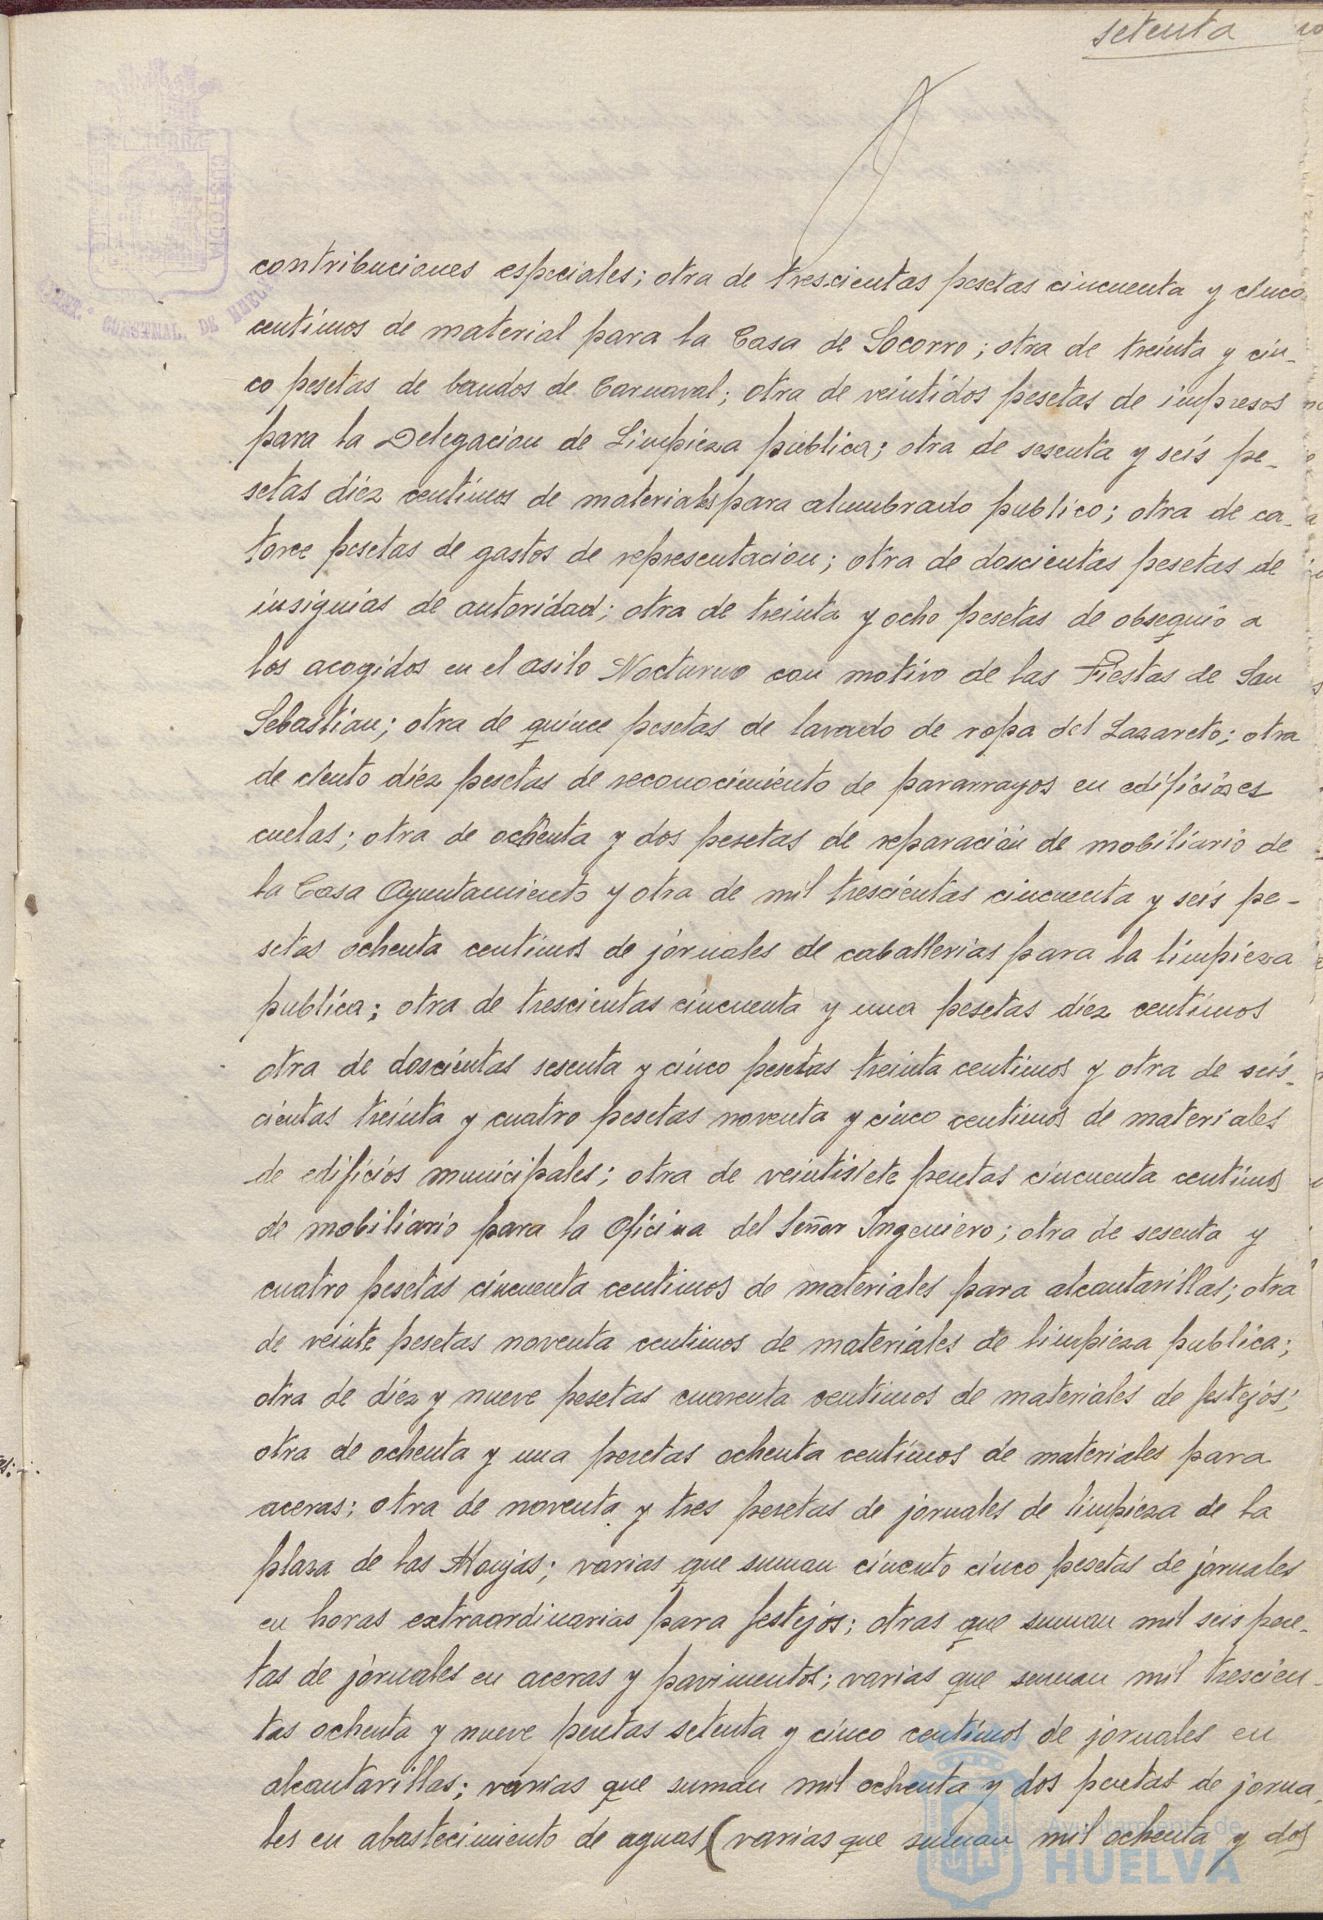 setenta
contribuciones especiales; otra de trescientas pesetas cincuenta y cinco
centimos de material para la Casa de Socorro; otra de treinta y cin-
co pesetas de bandos de Carnaval; otra de veintidos pesetas de impresos
para la Delegacion de Limpieza publica; otra de sesenta y seis pe-
setas diez centimos de materiales para alumbrado publico; otra de ca-
torce pesetas de gastos de representacion; otra de doscientas pesetas de
insignias de autoridad; otra de treinta y ocho pesetas de obsequio a
los acogidos en el asilo Nocturno con motivo de las Fiestas de San
Sebastian; otra de quince pesetas de lavado de ropa del Lazareto; otra
de ciento diez pesetas de reconocimiento de pararrayos en edificios es
cuelas; otra de ochenta y dos pesetas de reparación de mobiliario de
la Casa Ayuntamiento y otra de mil trescientas cincuenta y seis pe-
setas ochenta centimos de jornales de caballerias para la limpieza
publica; otra de trescientas cincuenta y una pesetas diez centimos
otra de doscientas sesenta y cinco pesetas treinta centimos y otra de seis-
cientas treinta y cuatro pesetas noventa y cinco centimos de materiales
de edificios municipales; otra de veintisiete pesetas cincuenta centimos
de mobiliario para la Oficina del Señor Ingeniero; otra de sesenta y
cuatro pesetas cincuenta centimos de materiales para alcantarillas; otra
de veinte pesetas noventa centimos de materiales de limpieza publica;
otra de diez y nueve pesetas cuarenta centimos de materiales de festejos;
otra de ochenta y una pesetas ochenta centimos de materiales para
aceras; otra de noventa y tres pesetas de jornales de limpieza de la
plaza de las Monjas; varias que suman ciento cinco pesetas de jornales
en horas extraordinarias para festejos; otras que suman mil seis pese-
tas de jornales en aceras y pavimentos; varias que suman mil trescien-
tas ochenta y nueve pesetas setenta y cinco centimos de jornales en
alcantarillas; varias que suman mil ochenta y dos pesetas de jorna-
les en abastecimiento de aguas (varias que suman mil ochenta y dos
CUSTODIA
CUNSTNAL. DE HUELVA
Ayuntamiento de
HUELVA